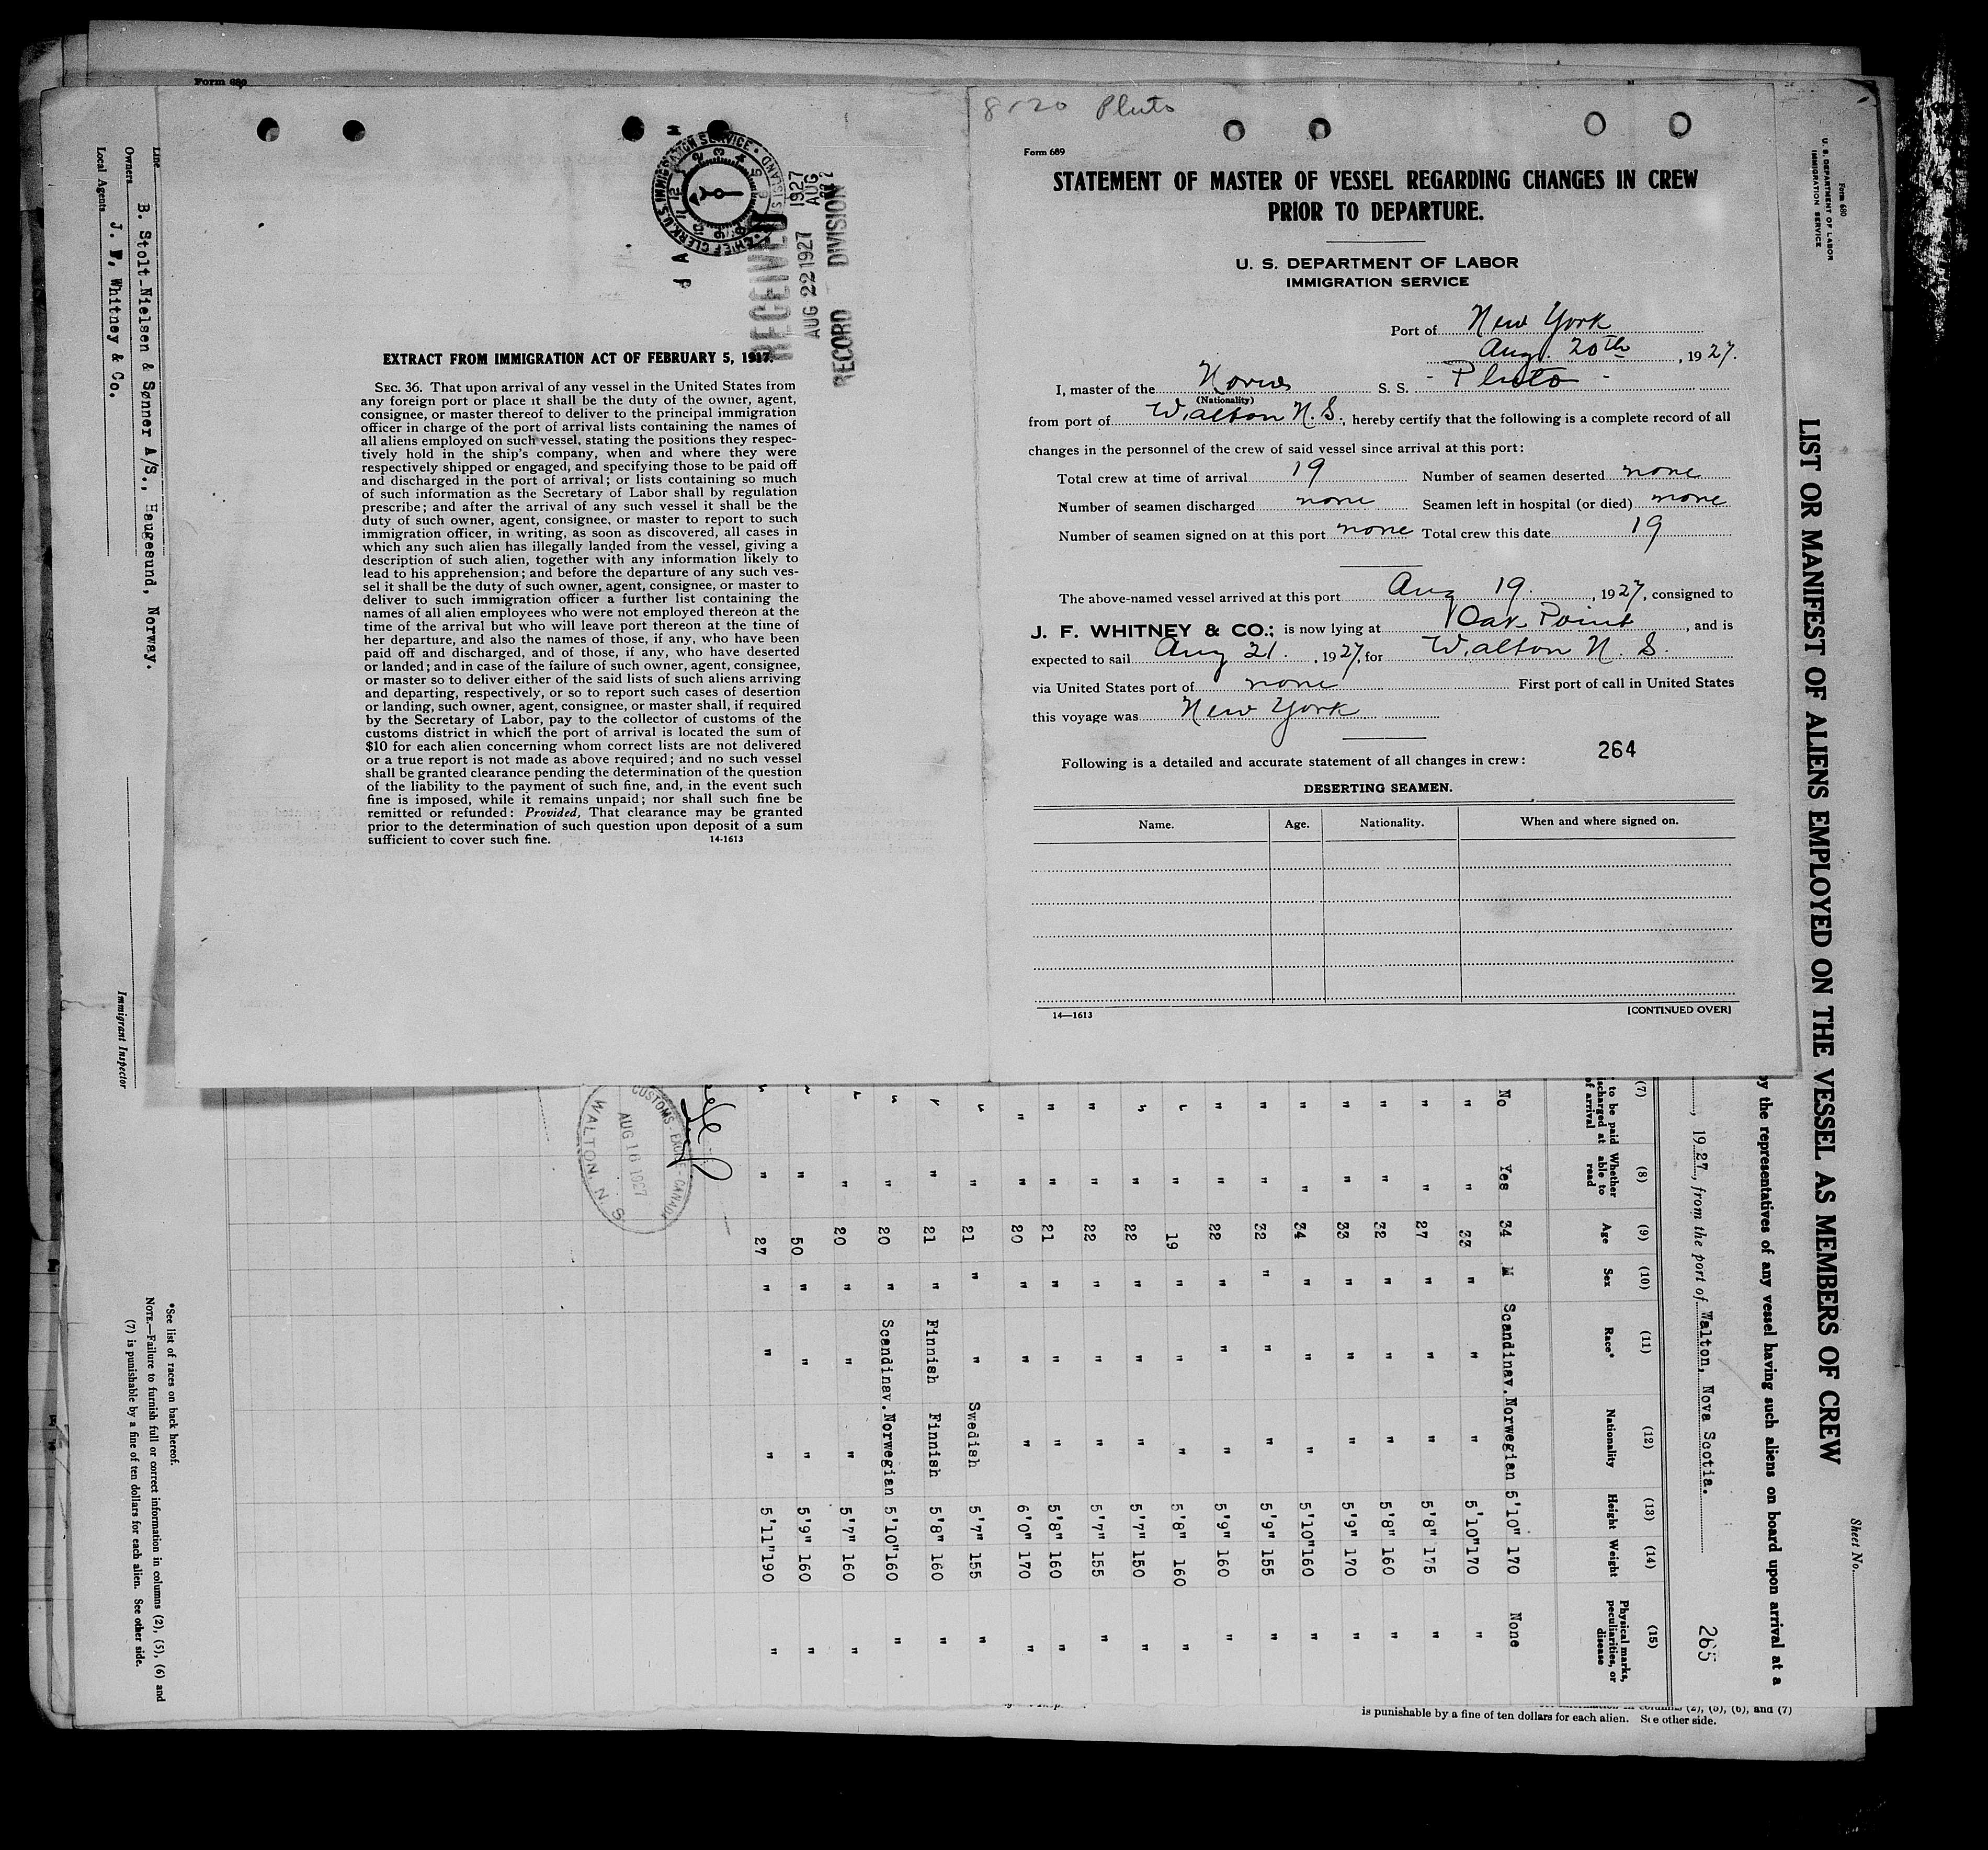 Form 680
8/20 Pluto
Line
Owners B. Stolt-Nielsen & Sønner A/S., Haugesund, Norway.
Local Agents J. F. Whitney & Co.
Immigrant Inspector
U.S. IMMIGRATION SERVICE
CHIEF CLERK
1927
AUG
RECEIVED
AUG 22 1927
RECORD DIVISION
EXTRACT FROM IMMIGRATION ACT OF FEBRUARY 5, 1917.
SEC. 36. That upon arrival of any vessel in the United States from
any foreign port or place it shall be the duty of the owner, agent,
consignee, or master thereof to deliver to the principal immigration
officer in charge of the port of arrival lists containing the names of
all aliens employed on such vessel, stating the positions they respec-
tively hold in the ship's company, when and where they were
respectively shipped or engaged, and specifying those to be paid off
and discharged in the port of arrival; or lists containing so much
of such information as the Secretary of Labor shall by regulation
prescribe; and after the arrival of any such vessel it shall be the
duty of such owner, agent, consignee, or master to report to such
immigration officer, in writing, as soon as discovered, all cases in
which any such alien has illegally landed from the vessel, giving a
description of such alien, together with any information likely to
lead to his apprehension; and before the departure of any such ves-
sel it shall be the duty of such owner, agent, consignee, or master to
deliver to such immigration officer a further list containing the
names of all alien employees who were not employed thereon at the
time of the arrival but who will leave port thereon at the time of
her departure, and also the names of those, if any, who have been
paid off and discharged, and of those, if any, who have deserted
or landed; and in case of the failure of such owner, agent, consignee,
or master so to deliver either of the said lists of such aliens arriving
and departing, respectively, or so to report such cases of desertion
or landing, such owner, agent, consignee, or master shall, if required
by the Secretary of Labor, pay to the collector of customs of the
customs district in which the port of arrival is located the sum of
$10 for each alien concerning whom correct lists are not delivered
or a true report is not made as above required; and no such vessel
shall be granted clearance pending the determination of the question
of the liability to the payment of such fine, and, in the event such
fine is imposed, while it remains unpaid; nor shall such fine be
remitted or refunded: Provided, That clearance may be granted
prior to the determination of such question upon deposit of a sum
sufficient to cover such fine. 14-1613
Form 689
STATEMENT OF MASTER OF VESSEL REGARDING CHANGES IN CREW
PRIOR TO DEPARTURE.
U. S. DEPARTMENT OF LABOR
IMMIGRATION SERVICE
Port of New York
Aug. 20th, 1927.
I, master of the Norw S. S. - Pluto -
(Nationality)
from port of Walton N. S., hereby certify that the following is a complete record of all
changes in the personnel of the crew of said vessel since arrival at this port:
Total crew at time of arrival 19 Number of seamen deserted none
Number of seamen discharged none Seamen left in hospital (or died) none
Number of seamen signed on at this port none Total crew this date 19
The above-named vessel arrived at this port Aug 19., 1927, consigned to
J. F. WHITNEY & CO.; is now lying at Oak Point, and is
expected to sail Aug 21., 1927, for Walton N. S.
via United States port of none First port of call in United States
this voyage was New York
264
Following is a detailed and accurate statement of all changes in crew:
DESERTING SEAMEN.
Name. Age. Nationality. When and where signed on.
14—1613 [CONTINUED OVER]
Form 680
U. S. DEPARTMENT OF LABOR
IMMIGRATION SERVICE
Sheet No.
LIST OR MANIFEST OF ALIENS EMPLOYED ON THE VESSEL AS MEMBERS OF CREW
by the representatives of any vessel having such aliens on board upon arrival at a
, 1927, from the port of Walton, Nova Scotia.
265
(7) (8) (9) (10) (11) (12) (13) (14) (15)
to be paid
discharged at
of arrival
Whether able to read
Age
Sex
Race*
Nationality
Height
Weight
Physical marks, peculiarities, or disease
No Yes 34 M Scandinav. Norwegian 5'10" 170 None
" " 33 " " " 5'10" 170 "
" " 27 " " " 5'8" 175 "
" " 32 " " " 5'8" 160 "
" " 33 " " " 5'9" 170 "
" " 34 " " " 5'10" 160 "
" " 32 " " " 5'9" 155 "
" " 22 " " " 5'9" 160 "
" " 19 " " " 5'8" 160 "
" " 22 " " " 5'7" 150 "
" " 22 " " " 5'7" 155 "
" " 21 " " " 5'8" 160 "
" " 20 " " " 6'0" 170 "
" " 21 " " Swedish 5'7" 155 "
" " 21 " Finnish Finnish 5'8" 160 "
" " 20 " Scandinav. Norwegian 5'10" 160 "
" " 20 " " " 5'7" 160 "
" " 50 " " " 5'9" 160 "
" " 27 " " " 5'11" 190 "
CUSTOMS - EXCISE - CANADA
AUG 16 1927
WALTON, N. S.
*See list of races on back hereof.
NOTE.—Failure to furnish full or correct information in columns (2), (5), (6) and
(7) is punishable by a fine of ten dollars for each alien. See other side.
columns (2), (5), (6), and (7)
is punishable by a fine of ten dollars for each alien. See other side.